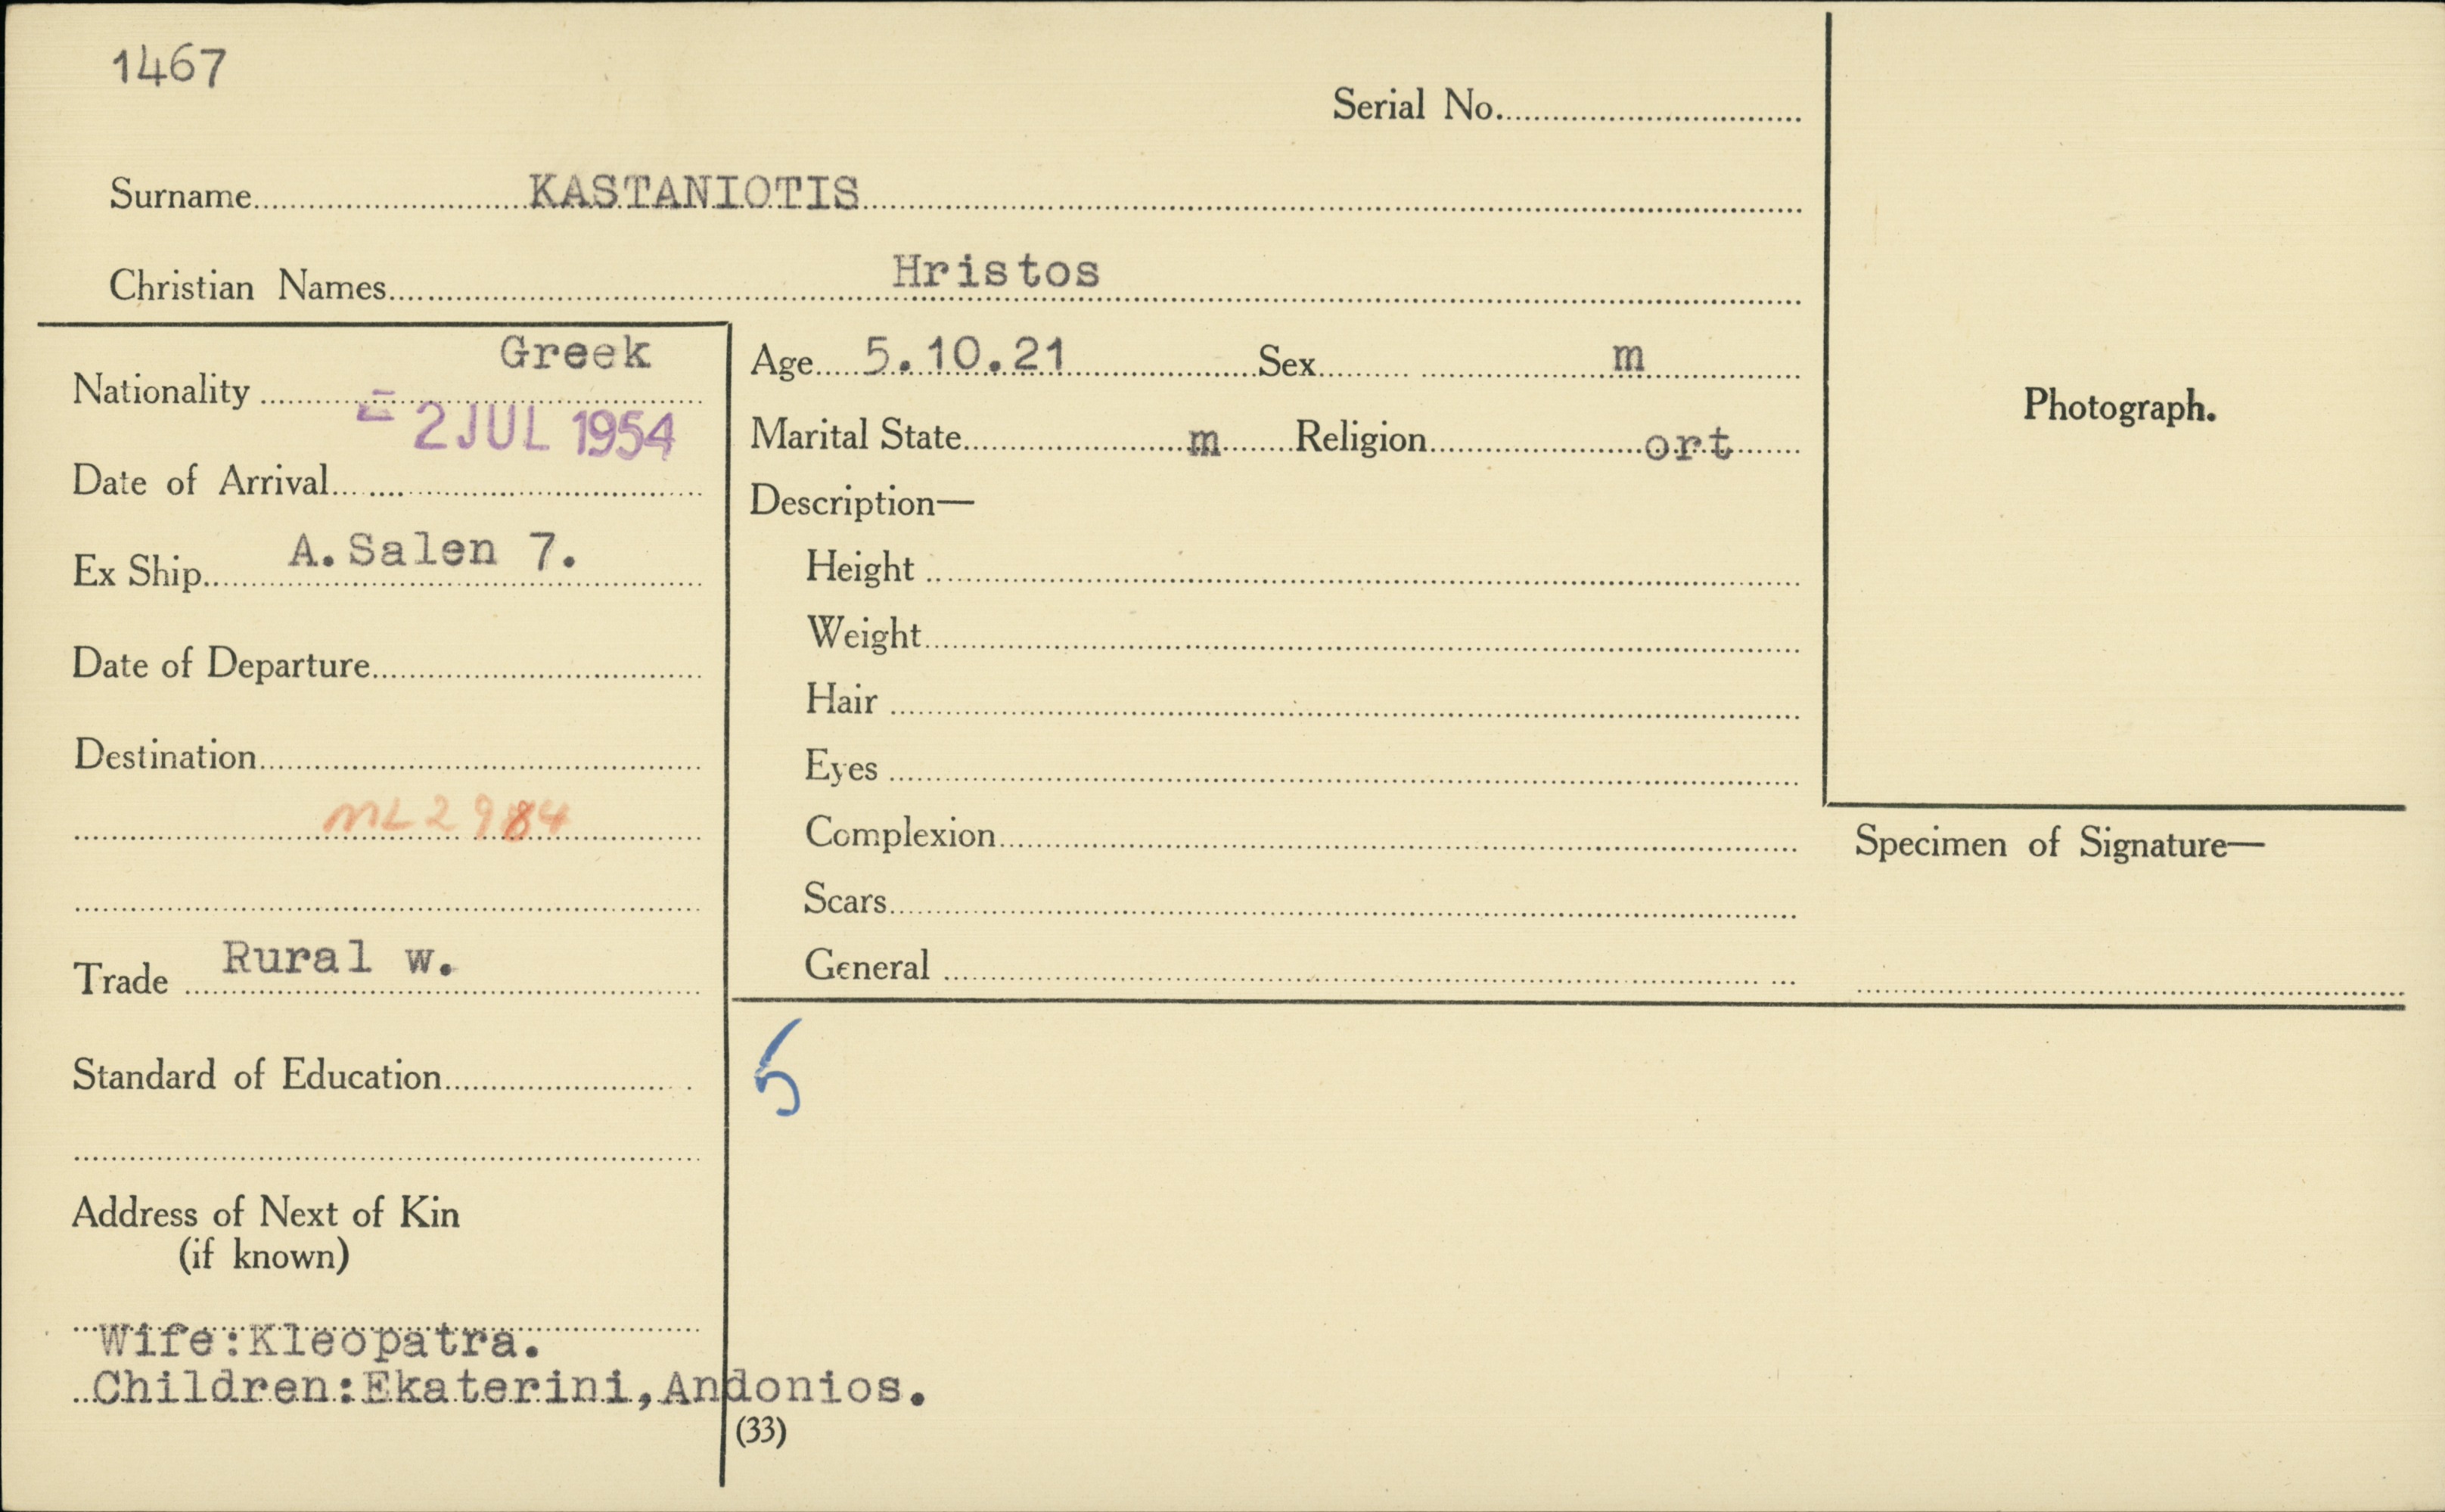 1467
Serial No.
Surname KASTANIOTIS
Christian Names Hristos
Nationality Greek
Date of Arrival - 2 JUL 1954
Ex Ship A.Salen 7.
Date of Departure
Destination
ML2984
Trade Rural w.
Standard of Education
Address of Next of Kin
(if known)
Wife:Kleopatra.
Children:Ekaterini,Andonios.
(33)
Age 5.10.21 Sex m
Marital State m Religion ort
Description—
Height
Weight
Hair
Eyes
Complexion
Scars
General
5
Photograph.
Specimen of Signature—